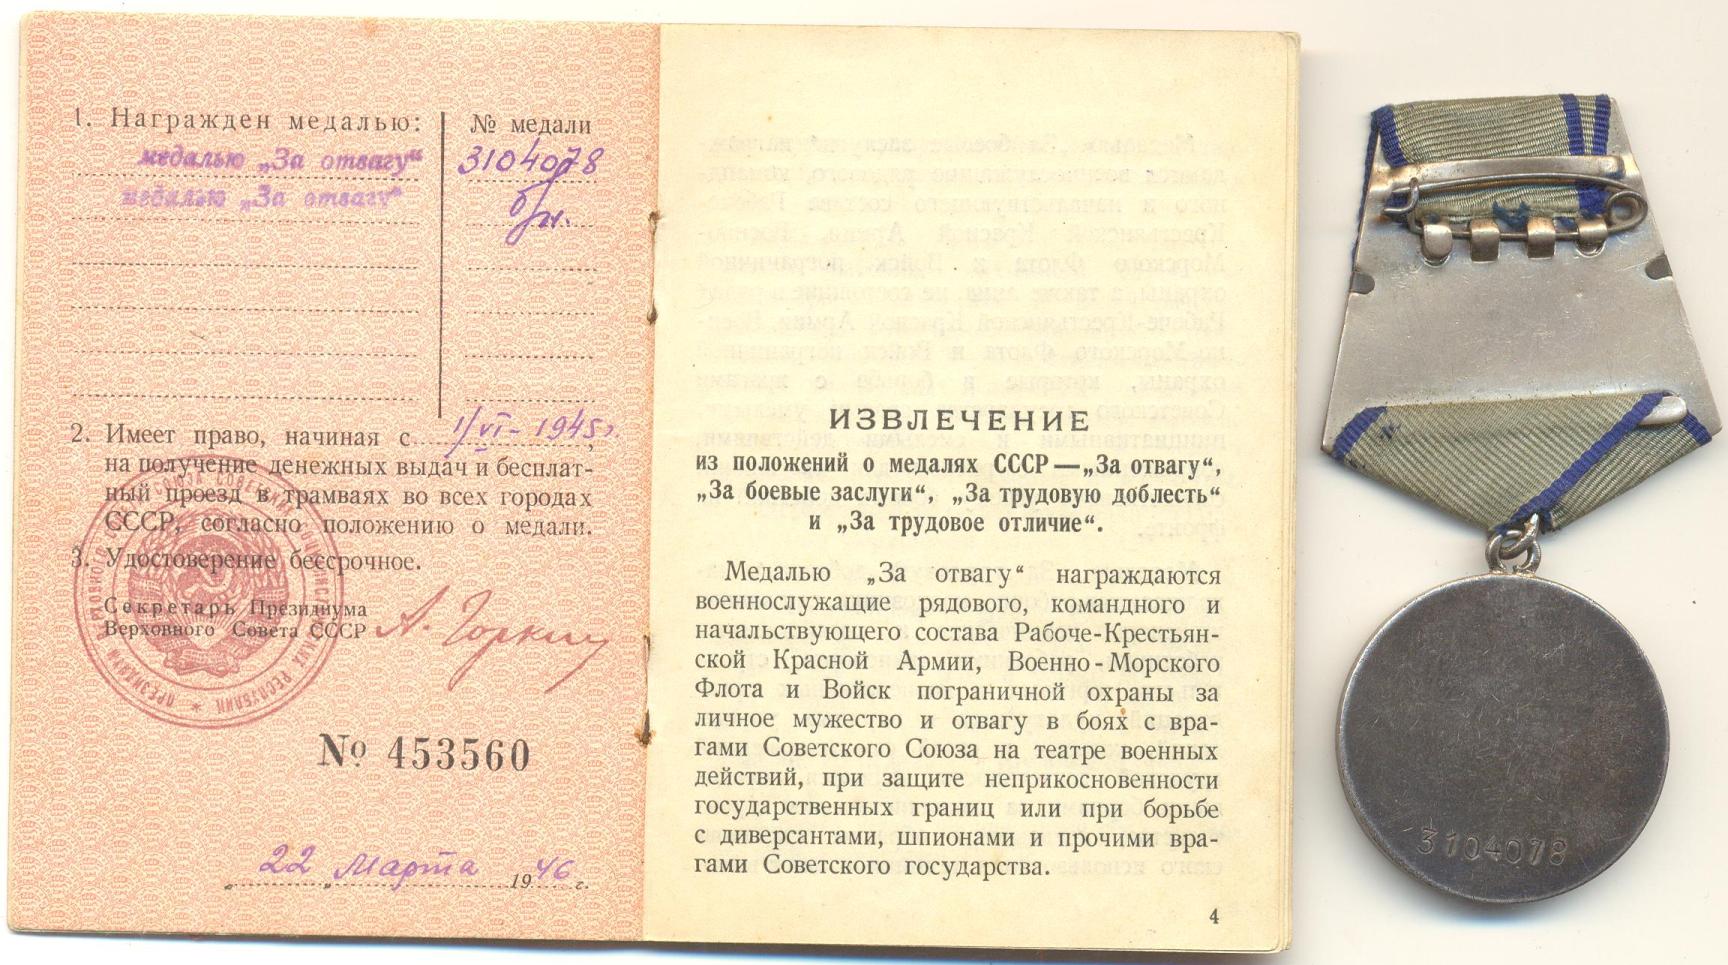 1. Награжден медалью:
№ медали
медалью „За отвагу“
3104078
медалью „За отвагу“
б/н.
2. Имеет право, начиная с 1/VI-1945г.,
на получение денежных выдач и бесплат-
ный проезд в трамваях во всех городах
СССР, согласно положению о медали.
3. Удостоверение бессрочное.
Секретарь Президиума
Верховного Совета СССР А. Горкин
№ 453560
„22„ Марта 1946 г.
ИЗВЛЕЧЕНИЕ
из положений о медалях СССР—„За отвагу“,
„За боевые заслуги“, „За трудовую доблесть“
и „За трудовое отличие“.
Медалью „За отвагу“ награждаются
военнослужащие рядового, командного и
начальствующего состава Рабоче-Крестьян-
ской Красной Армии, Военно-Морского
Флота и Войск пограничной охраны за
личное мужество и отвагу в боях с вра-
гами Советского Союза на театре военных
действий, при защите неприкосновенности
государственных границ или при борьбе
с диверсантами, шпионами и прочими вра-
гами Советского государства.
4
3104078